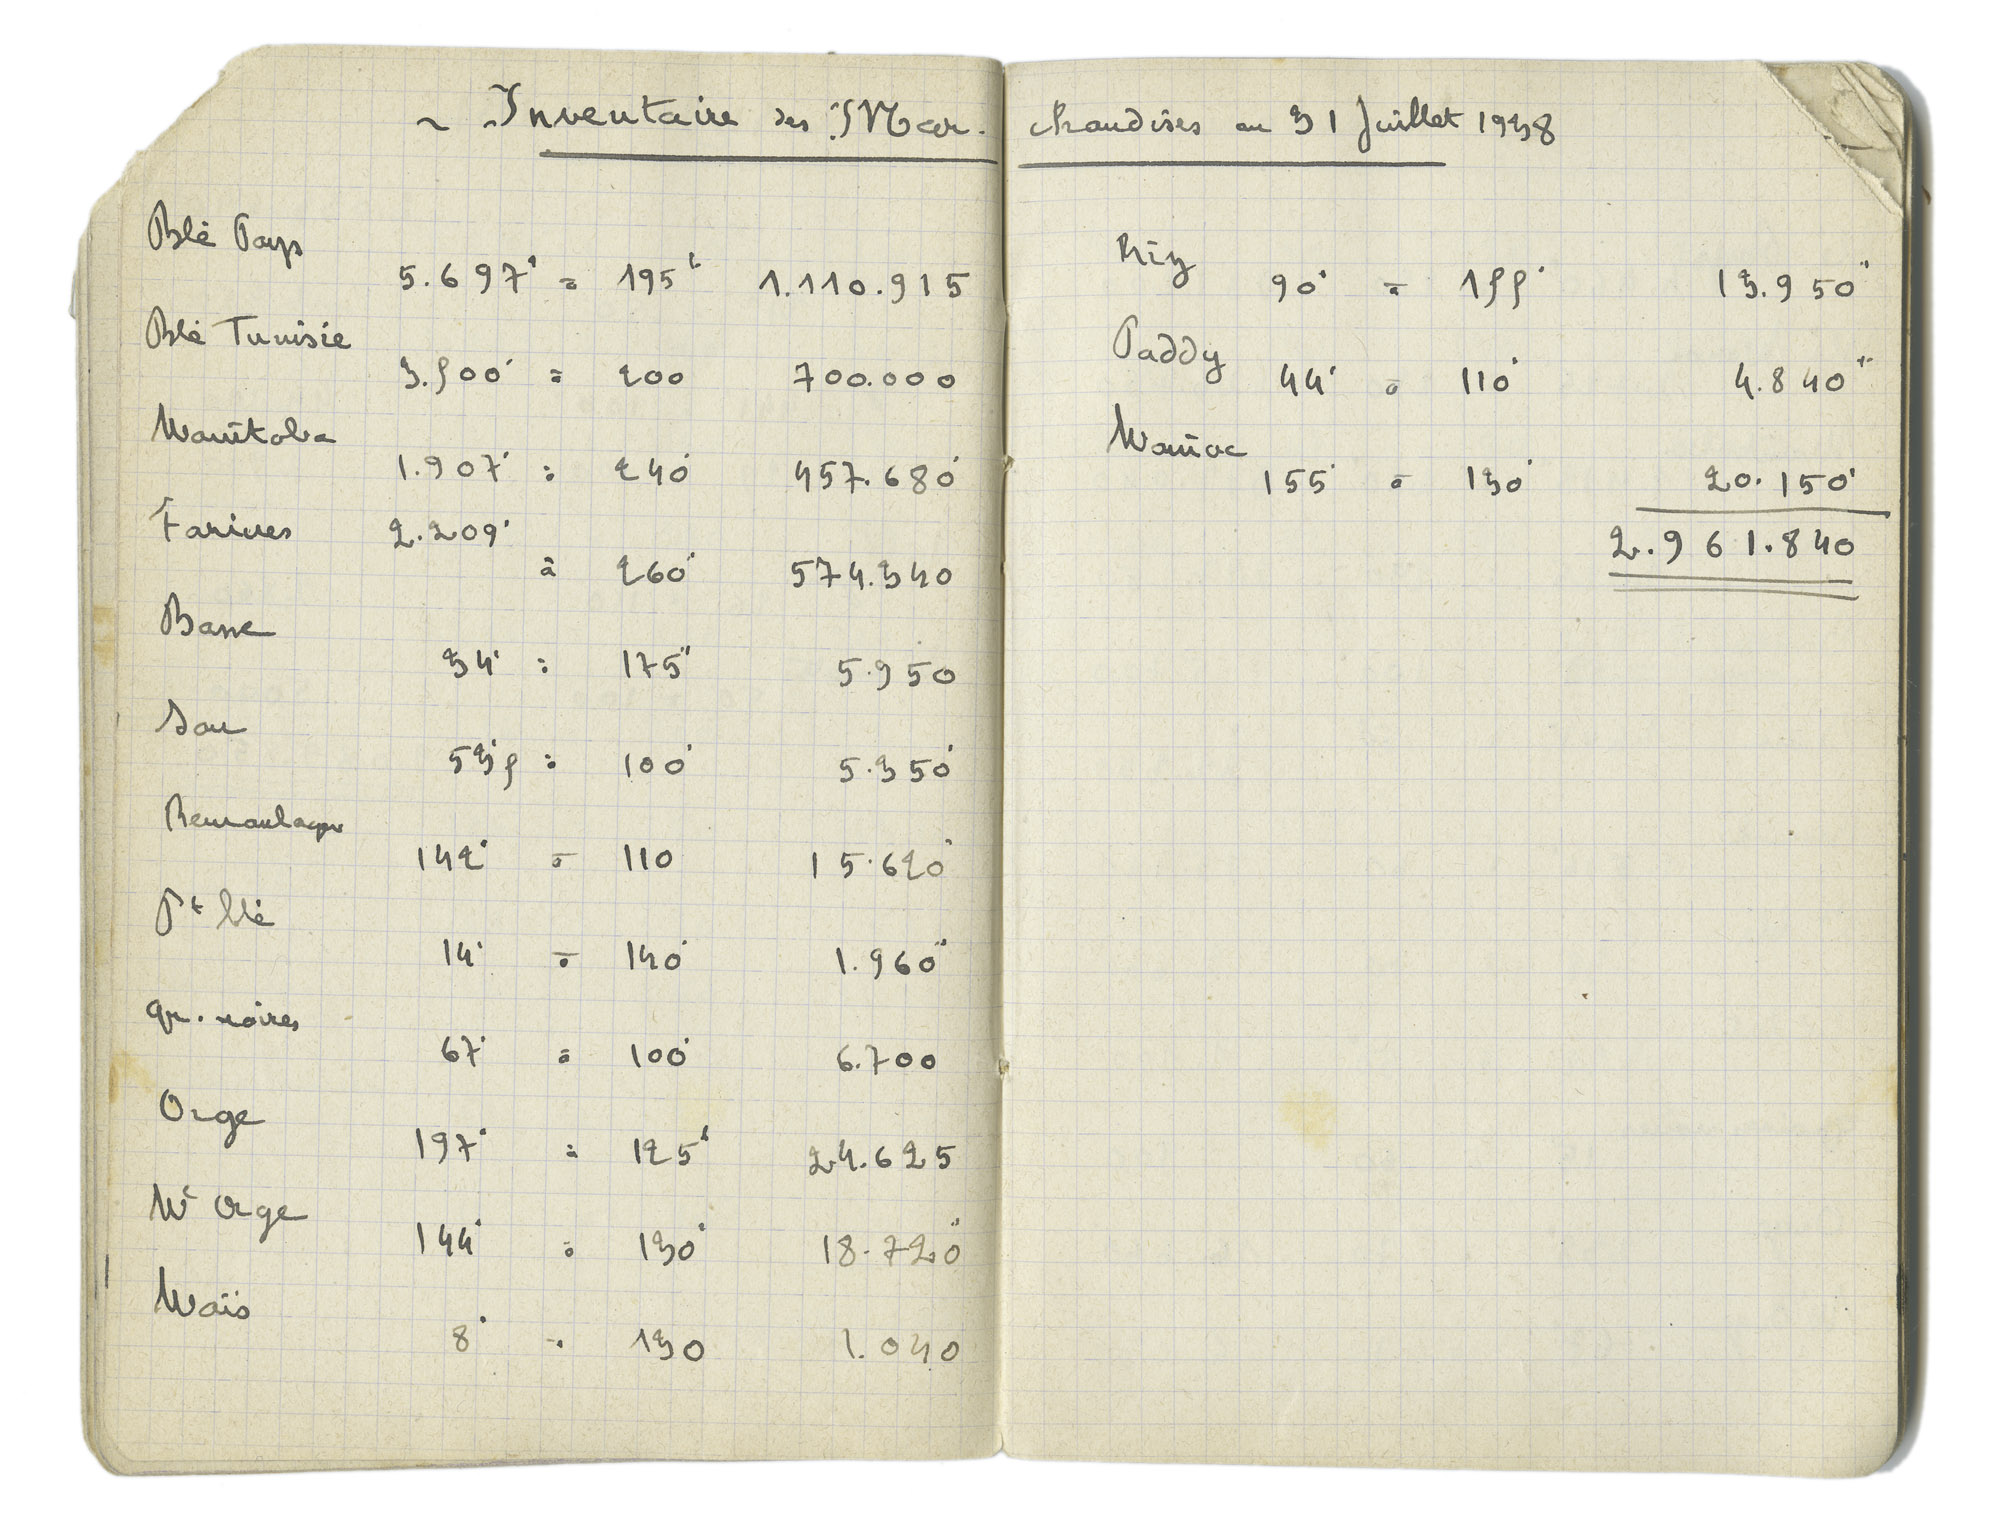 ~ Inventaire des Mar-
chandises au 31 Juillet 1938
Blé Pays
5.697 à 195 1.110.915
Blé Tunisie
3.500 à 200 700.000
Manitoba
1.907 à 240 457.680
Farines 2.209
à 260 574.340
Basse
34 à 175 5.950
Son
53,5 à 100 5.350
Remoulage
142 à 110 15.620
Pt blé
14 à 140 1.960
gr. noires
67 à 100 6.700
Orge
197 à 125 24.625
Orge
144 à 130 18.720
Maïs
8 à 130 1.040
Riz
90 à 155 13.950
Paddy
44 à 110 4.840
Manioc
155 à 130 20.150
2.961.840